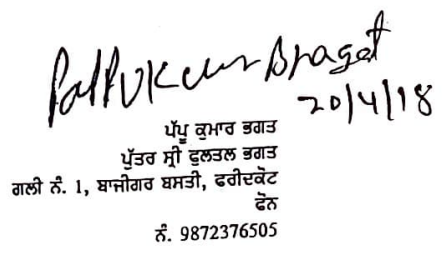 Pappu Kumar Bhagat
20/4/18
ਪੱਪੂ ਕੁਮਾਰ ਭਗਤ
ਪੁੱਤਰ ਸ੍ਰੀ ਫੁਲਤਲ ਭਗਤ
ਗਲੀ ਨੰ. 1, ਬਾਜੀਗਰ ਬਸਤੀ, ਫਰੀਦਕੋਟ
ਫੋਨ
ਨੰ. 9872376505